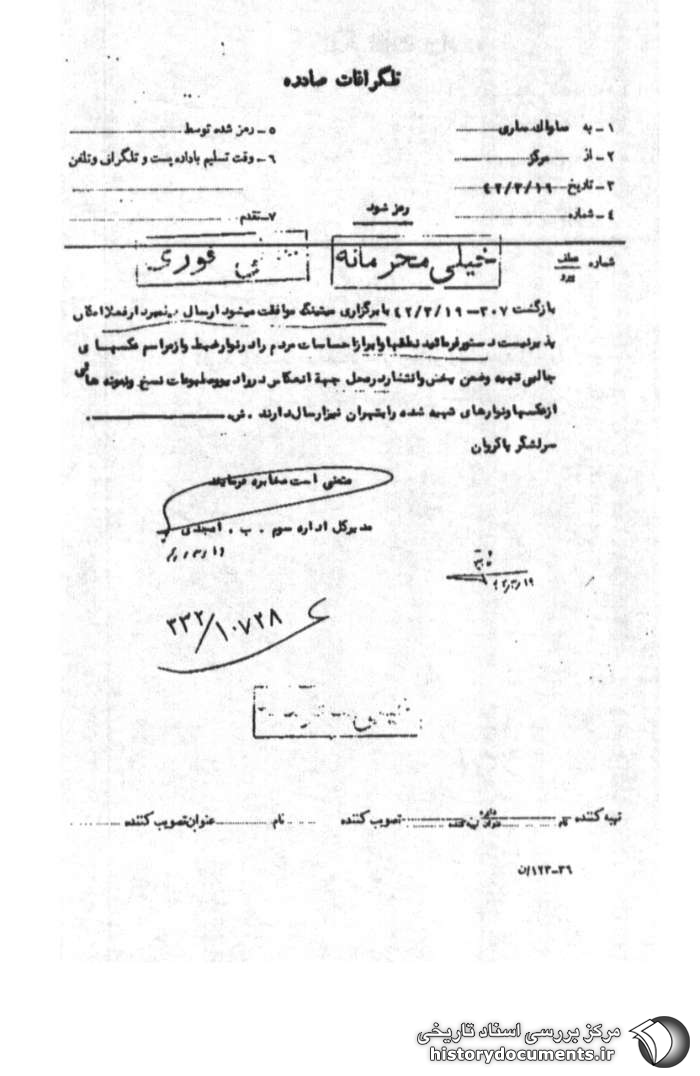 تلگرافات صادره
۱ـ به ساواک ساری
۵ ـ رمز شده توسط
۲ ـ از مرکز
۶ ـ وقت تسلیم باداره پست و تلگراف وتلفن
۳ ـ تاریخ ۴۲/۳/۱۹
۴ ـ شماره
رمز شود
۷ ـ تقدم
شماره عطف پیرو
خیلی محرمانه
فوری
بازگشت ۳۰۷ـ ۴۲/۳/۱۹ با برگزاری میتینگ موافقت میشود ارسال فعلا امکان
پذیر نیست دستور فرمائید نطقها وابراز احساسات مردم را در نوار ضبط واز مراسم عکسهای
جالبی تهیه وضمن پخش وانتشار در محل جهة انعکاس در رادیو ومطبوعات نسخ ونمونه هائی
از عکسها ونوارهای تهیه شده را بتهران نیز ارسال دارند . ش.
سرلشگر پاکروان
متمنی است مخابره فرمایند
مدیرکل اداره سوم . ب . امجدی
۳۳۲/۱۰۷۲۸
تهیه کننده نام تصویب کننده نام عنوان تصویب کننده
۳۶ـ۱۲۳/ن
مرکز بررسی اسناد تاریخی
historydocuments.ir